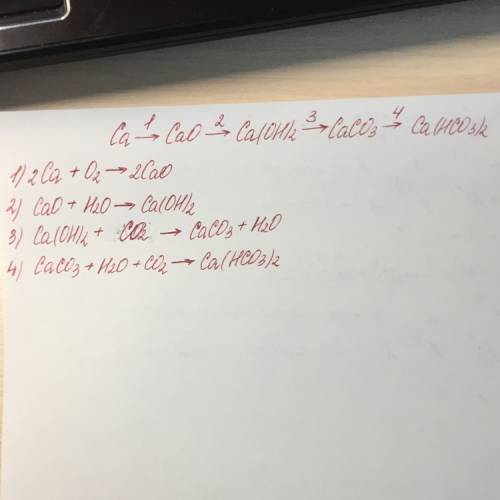 Ca 1→ CaO 2→ Ca(OH)2 3→ CaCO3 4→ Ca(HCO3)2
1) 2Ca + O2 → 2CaO
2) CaO + H2O → Ca(OH)2
3) Ca(OH)2 + CO2 → CaCO3 + H2O
4) CaCO3 + H2O + CO2 → Ca(HCO3)2